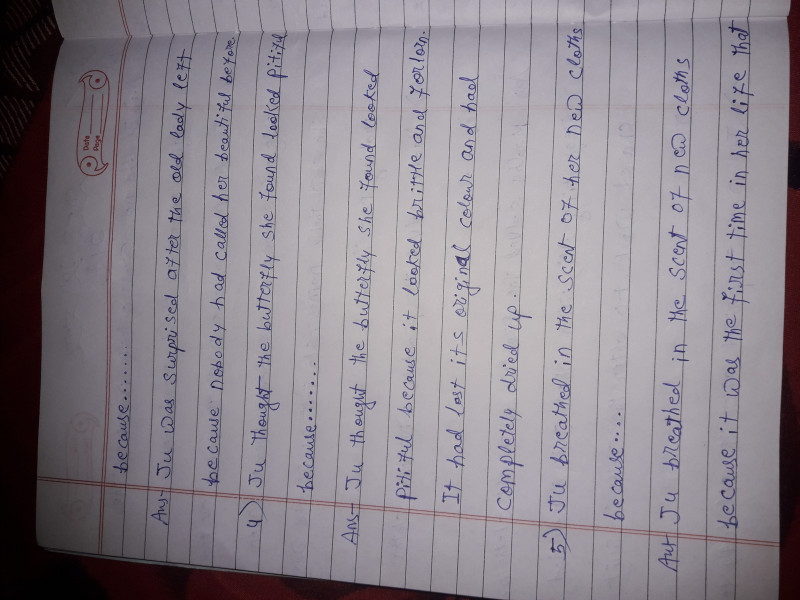 Date
Page
because.......
Ans- Ju was surprised after the old lady left
because nobody had called her beautiful before.
4) Ju thought the butterfly she found looked pitiful
because.......
Ans- Ju thought the butterfly she found looked
Pitiful because it looked brittle and forlorn.
It had lost its original colour and had
completely dried up.
5) Ju breathed in the scent of her new cloths
because....
Ans Ju breathed in the scent of new cloths
because it was the first time in her life that